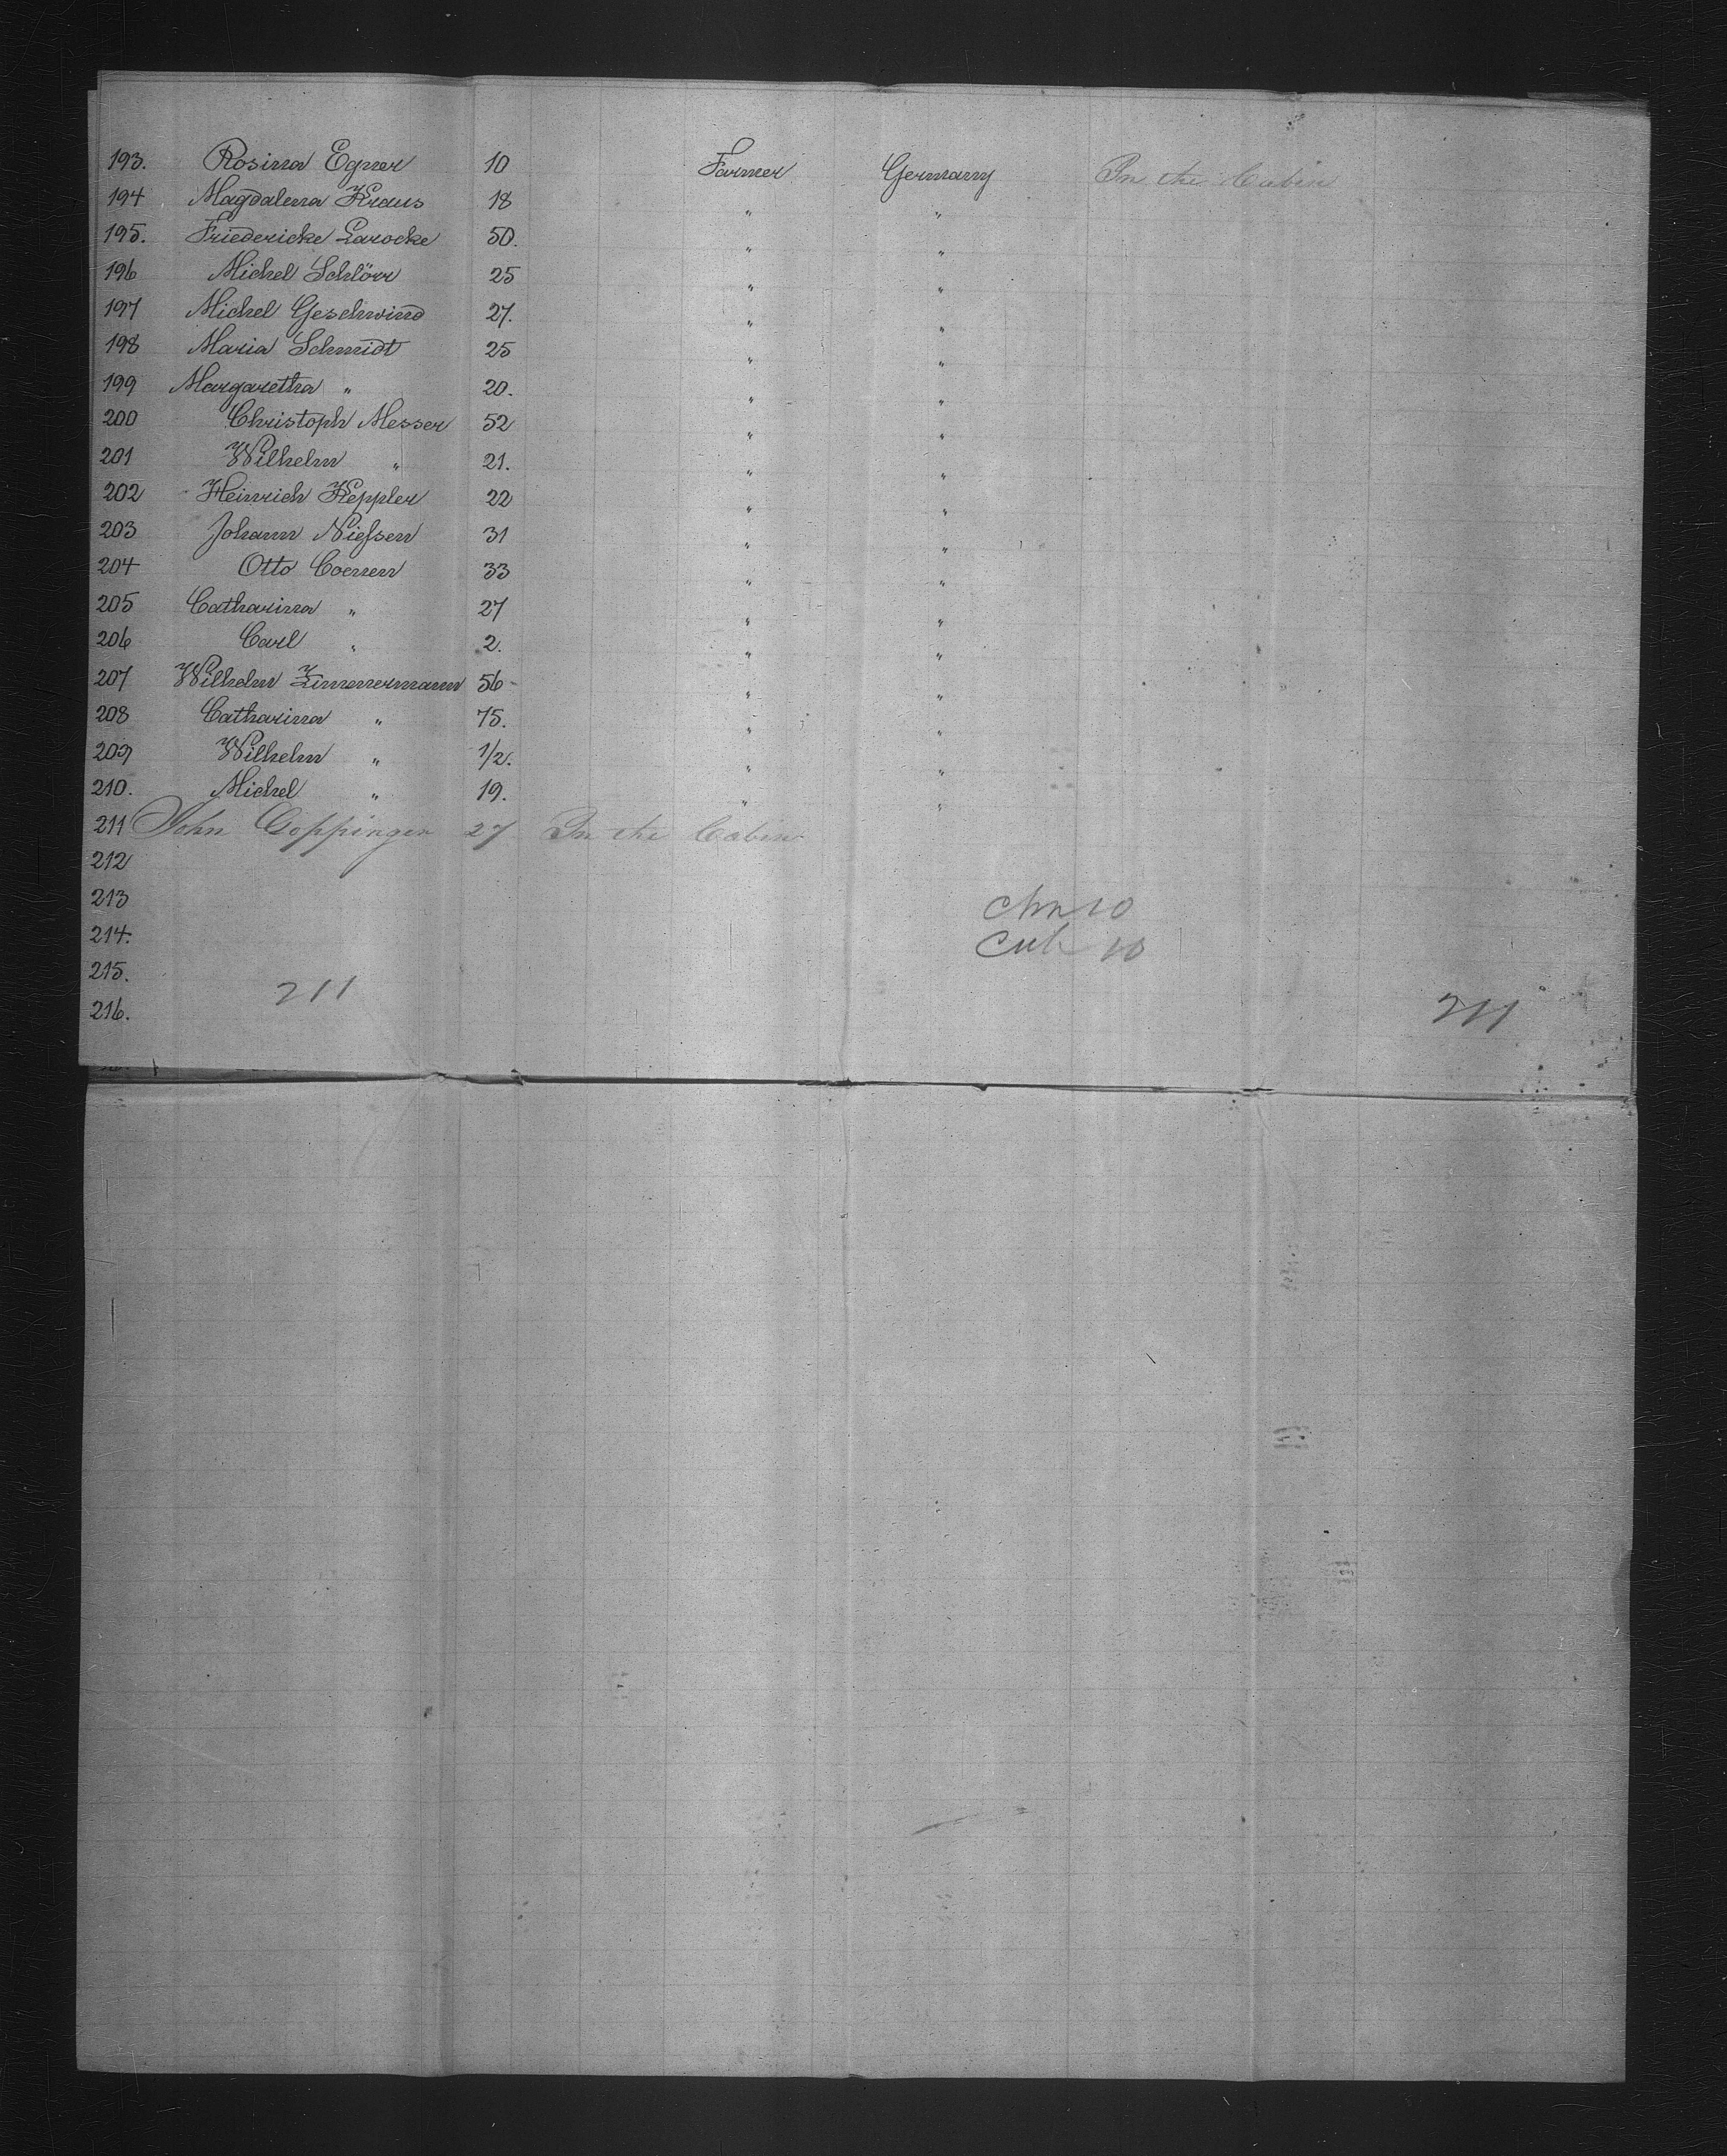 193. Rosina Egner 10 Farmer Germany In the Cabin
194 Magdalena Kraus 18 " "
195. Friedericke Larocke 50. " "
196 Michel Schlörr 25 " "
197 Michel Geschwind 27. " "
198 Maria Schmidt 25 " "
199 Margaretha " 20. " "
200 Christoph Messer 52 " "
201 Wilhelm " 21. " "
202 Heinrich Keppler 22 " "
203 Johann Nießen 31 " "
204 Otto Coenen 33 " "
205 Catharina " 27 " "
206 Carl " 2. " "
207 Wilhelm Zimmermann 56 " "
208 Catharina " 75. " "
209 Wilhelm " 1/2. " "
210. Michel " 19. " "
211 John Goppinger 27 In the Cabin
212
213
214.
215.
216.
211
211